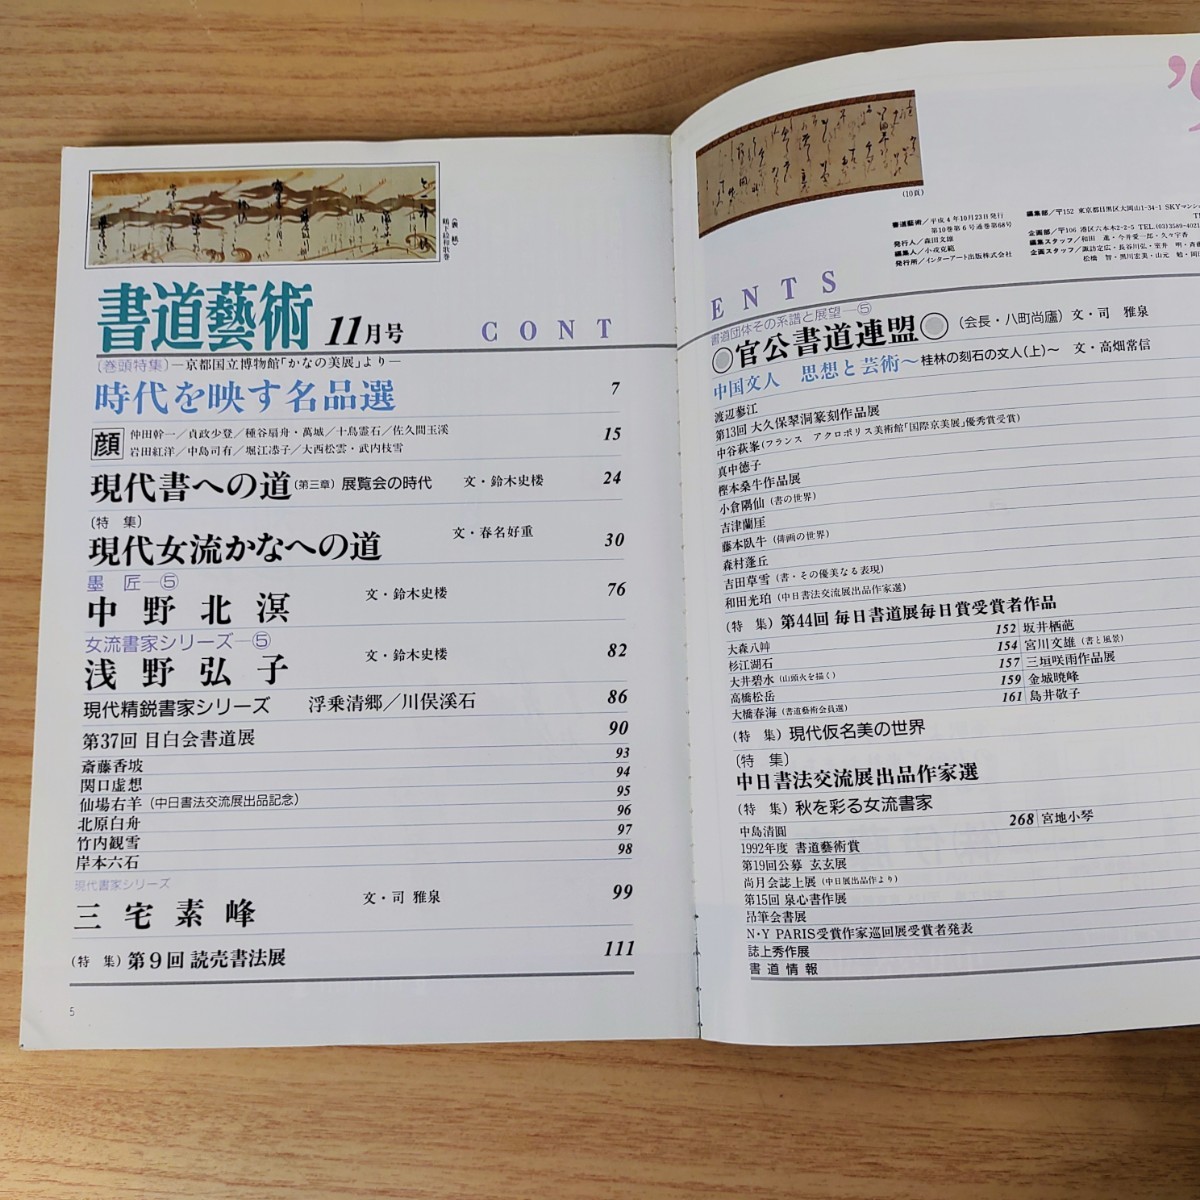 (表紙)
鶴下絵和歌巻
書道藝術 11月号 CONT
〔巻頭特集〕—京都国立博物館「かなの美展」より—
時代を映す名品選 7
顔 仲田幹一／貞政少登／種谷扇舟・萬城／十鳥霊石／佐久間玉溪 15
岩田紅洋／中島司有／堀江凑子／大西松雲・武内枝雪
現代書への道(第三章) 展覧会の時代 文・鈴木史楼 24
(特 集)
現代女流かなへの道 文・春名好重 30
墨 匠—⑤
中野北溟 文・鈴木史楼 76
女流書家シリーズ—⑤
浅野弘子 文・鈴木史楼 82
現代精鋭書家シリーズ 浮乗清郷／川俣溪石 86
第37回 目白会書道展 90
斎藤香坡 93
関口虚想 94
仙場右羊(中日書法交流展出品記念) 95
北原白舟 96
竹内観雪 97
岸本六石 98
現代書家シリーズ
三宅素峰 文・司 雅泉 99
(特 集) 第9回 読売書法展 111
5
(10頁)
書道藝術／平成4年10月23日発行
第10巻第6号通巻第68号
発行人／森田文雄
編集人／小成克範
発行所／インターアート出版株式会社
編集部／〒152 東京都目黒区大岡山1-34-1 SKYマンシ
企画部／〒106 港区六本木2-2-5 TEL.(03)3589-4021
編集スタッフ／和田 進・今井愛一郎・久々宇香
企画スタッフ／諏訪定広・長谷川弘・室井 明・斉
松橋 智・黒川宏美・山元 勉・岡
ENTS
書道団体その系譜と展望—⑤
◎官公書道連盟◎ (会長・八町尚廬) 文・司 雅泉
中国文人 思想と芸術〜桂林の刻石の文人(上)〜 文・高畑常信
渡辺蓼江
第13回 大久保翠洞篆刻作品展
中谷萩峯(フランス アクロポリス美術館「国際京美展」優秀賞受賞)
真中徳子
樫本桑牛作品展
小倉隅仙(書の世界)
吉津蘭厓
藤本臥牛(俳画の世界)
森村蓬丘
吉田草雪(書・その優美なる表現)
和田光珀(中日書法交流展出品作家選)
(特 集) 第44回 毎日書道展毎日賞受賞者作品
大森八㟁 152 坂井栖葩
杉江湖石 154 宮川文雄(書と風景)
大井碧水(山頭火を描く) 157 三垣咲雨作品展
高橋松岳 159 金城暁峰
大橋春海(書道藝術会員選) 161 島井敬子
(特 集) 現代仮名美の世界
(特 集)
中日書法交流展出品作家選
(特 集) 秋を彩る女流書家
中島清圓 268 宮地小琴
1992年度 書道藝術賞
第19回公募 玄玄展
尚月会誌上展(中日展出品作より)
第15回 泉心書作展
昂筆会書展
N・Y PARIS受賞作家巡回展受賞者発表
誌上秀作展
書道情報